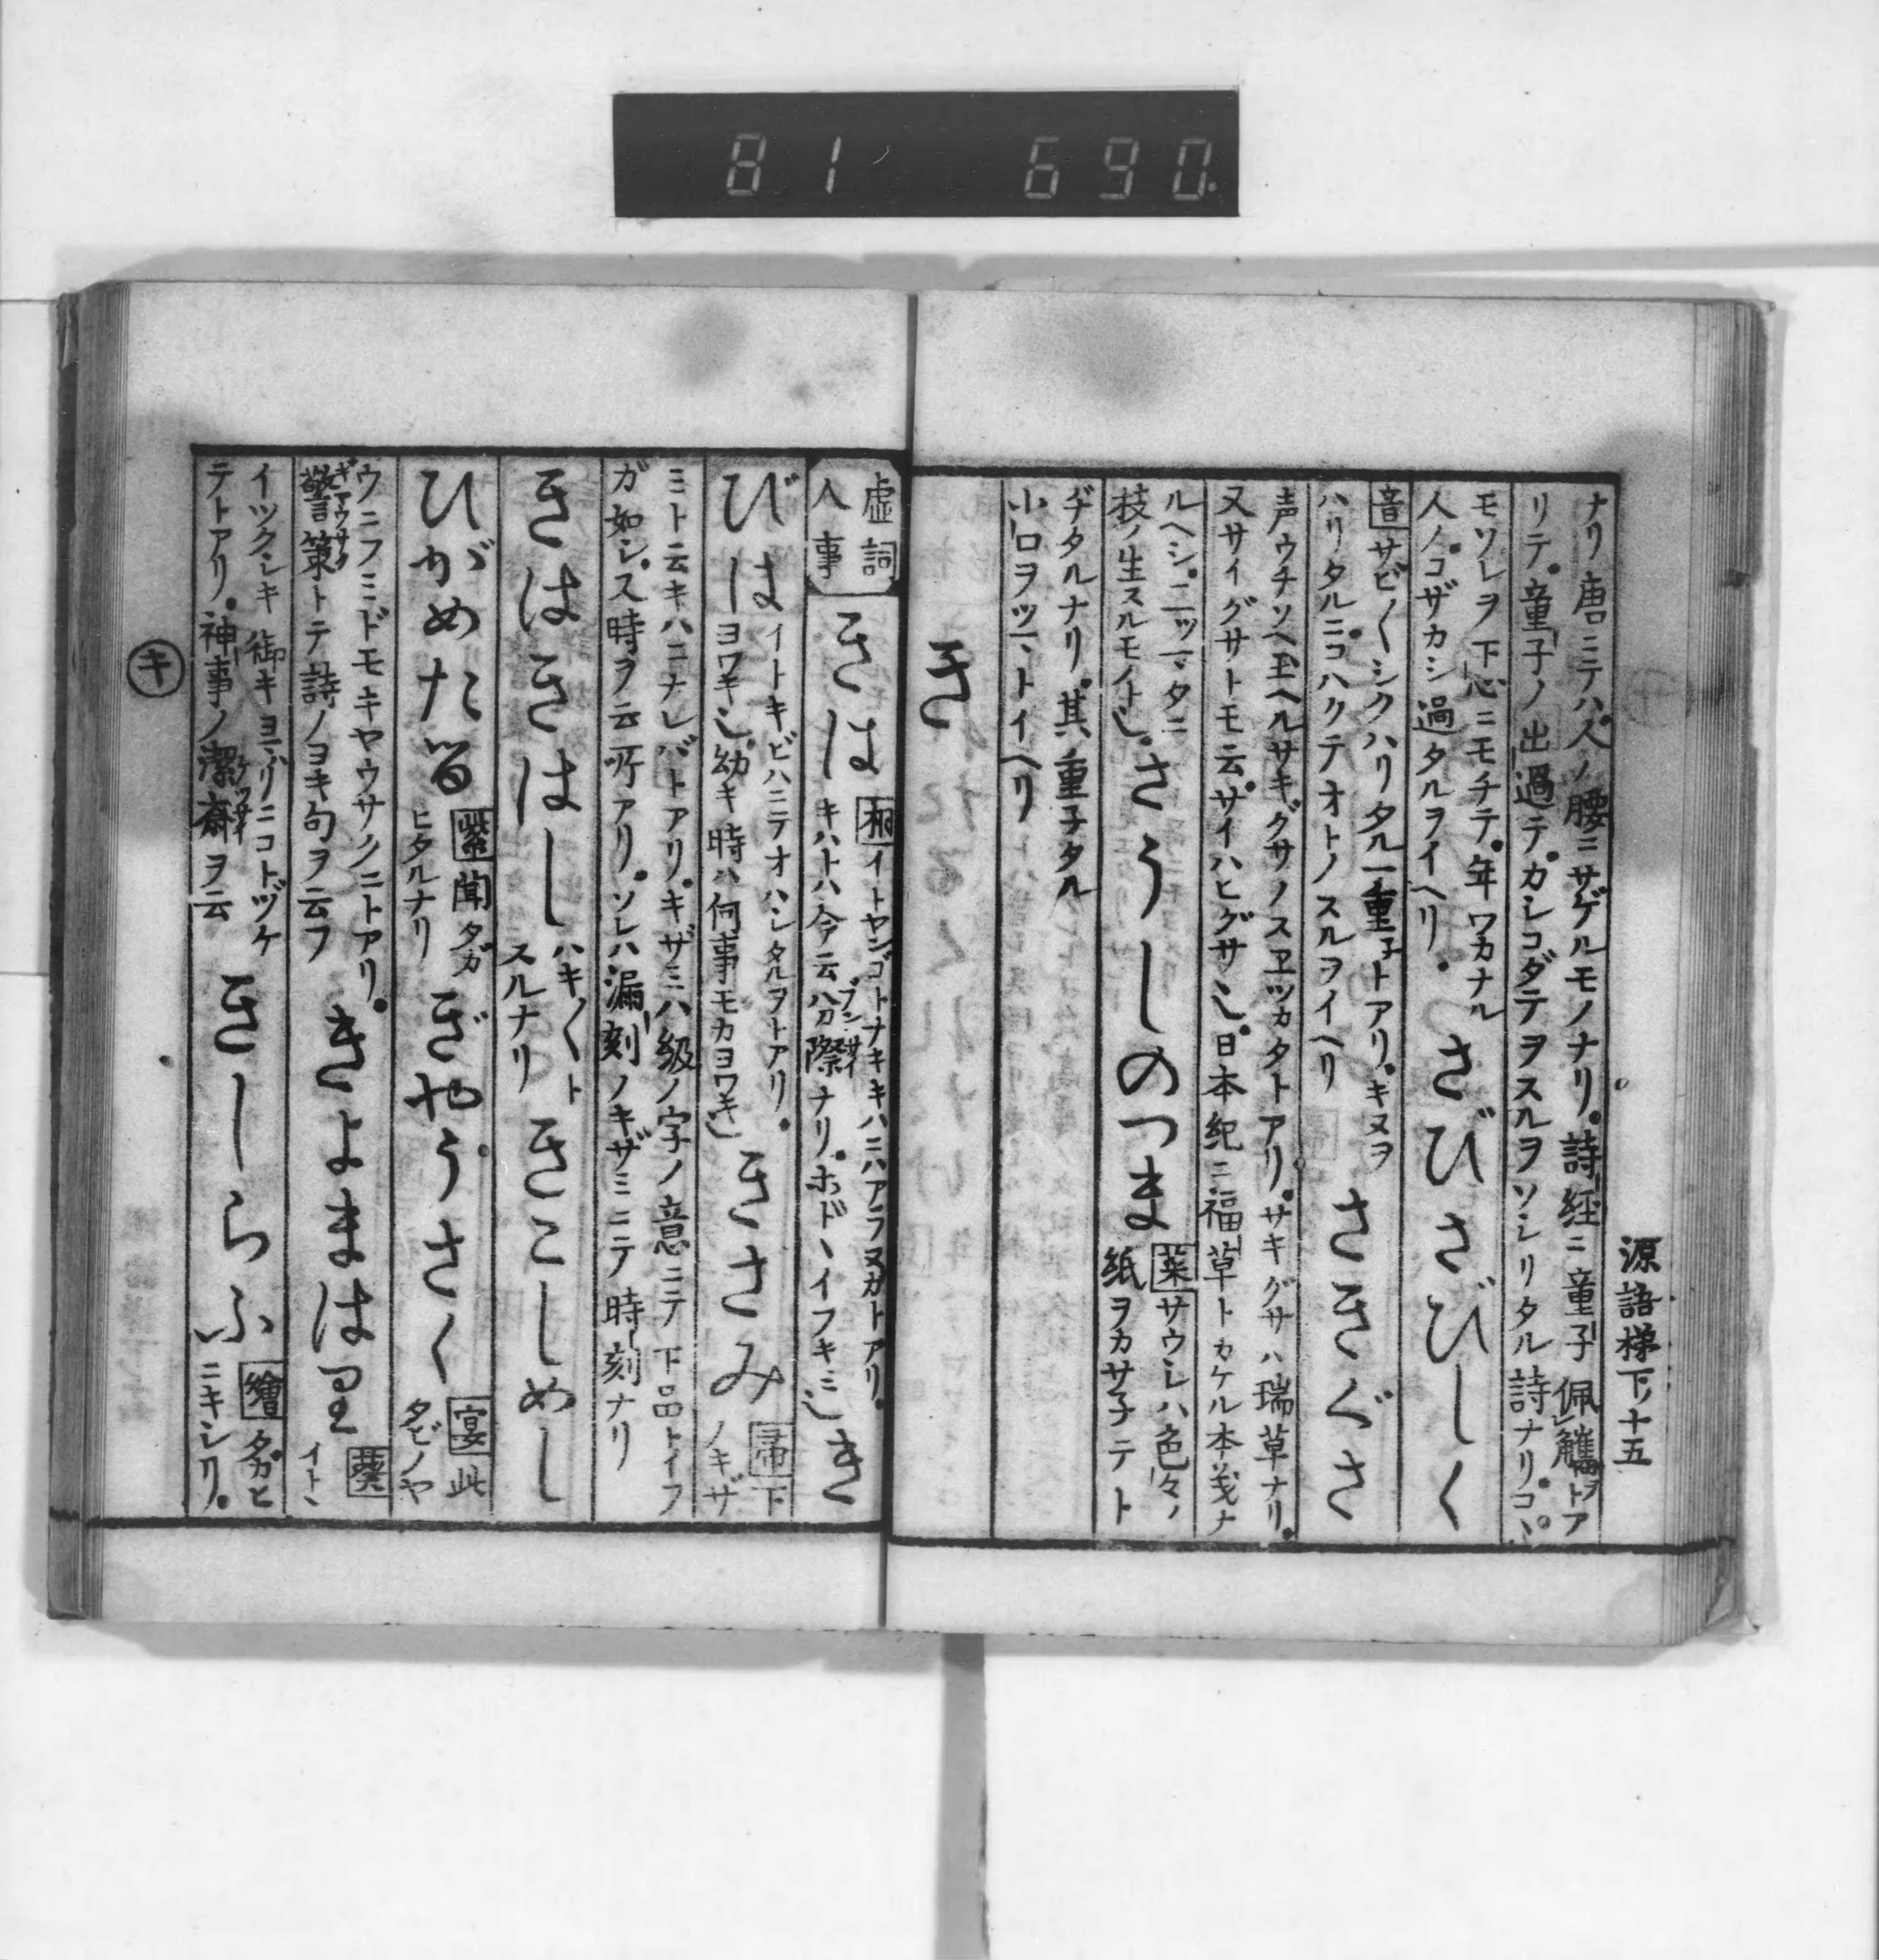 81 690
源語梯下ノ十五
ナリ唐ニテハ人ノ腰ニサゲルモノナリ。詩経ニ童子佩觿トア
リテ。童子ノ出過テ。カシコダテヲスルヲソシリタル詩ナリ。コヽ
モソレヲ下心ニモチテ。年ワカナル
人ノコザカシ過タルヲイヘリ。
さびさびしく
音 サビ〱シクハリタル一重子トアリ。キヌヲ
ハリタルニコハクテオトノスルヲイヘリ
さきぐさ
声ウチソヘ玉ヘルサキグサノスヱツカタトアリ。サキグサハ瑞草ナリ。
又サイグサトモ云。サイハヒグサ也。日本紀ニ福草トカケル本義ナ
ルヘシ。ニツ一マタニ
枝ノ生スルモノト也。
さうしのつま
葉 サウシハ色々ノ
紙ヲカサ子テト
ヂタルナリ。其重子タル
小口ヲツマトイヘリ
き
虚詞
人事
きは
桐 イトヤンゴトナキキハニハアラヌカトアリ。
キハトハ今云ハ分際ナリ。ホドヽイフキミ也
き
びは
イトキビハニテオハシタルヲトアリ。
ヨワキ也。幼キ時ハ何事モカヨワキ也
きさみ
帚 下
ノキザ
ミト云キハニナレバトアリ。キザミハ級ノ字ノ意ニテ下品トイフ
ガ如シ。ス時ヲ云所アリ。ソレハ漏刻ノキザミニテ時刻ナリ
きはきはし
ハキ〱ト
スルナリ
きこしめし
ひがめたる
紫 聞タガ
ヒタルナリ
ぎやうさく
宴 此
タビノヤ
ウニフミドモキヤウサクニトアリ。
警策トテ詩ノヨキ句ヲ云フ
きよまはり
葵
イトヽ
イツクシキ御キヨマハリニコトヅケ
テトアリ。神事ノ潔斎ヲ云
きしらふ
繪 タガヒ
ニキシリ。
キ